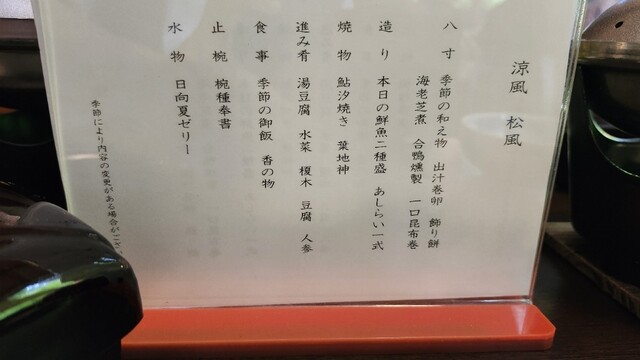 涼風 松風
八寸 季節の和え物 出汁巻卵 飾り餅
海老芝煮 合鴨燻製 一口昆布巻
造り 本日の鮮魚二種盛 あしらい一式
焼物 鮎汐焼き 葉地神
進み肴 湯豆腐 水菜 榎木 豆腐 人参
食事 季節の御飯 香の物
止椀 椀種奉書
水物 日向夏ゼリー
季節により内容の変更がある場合がござい